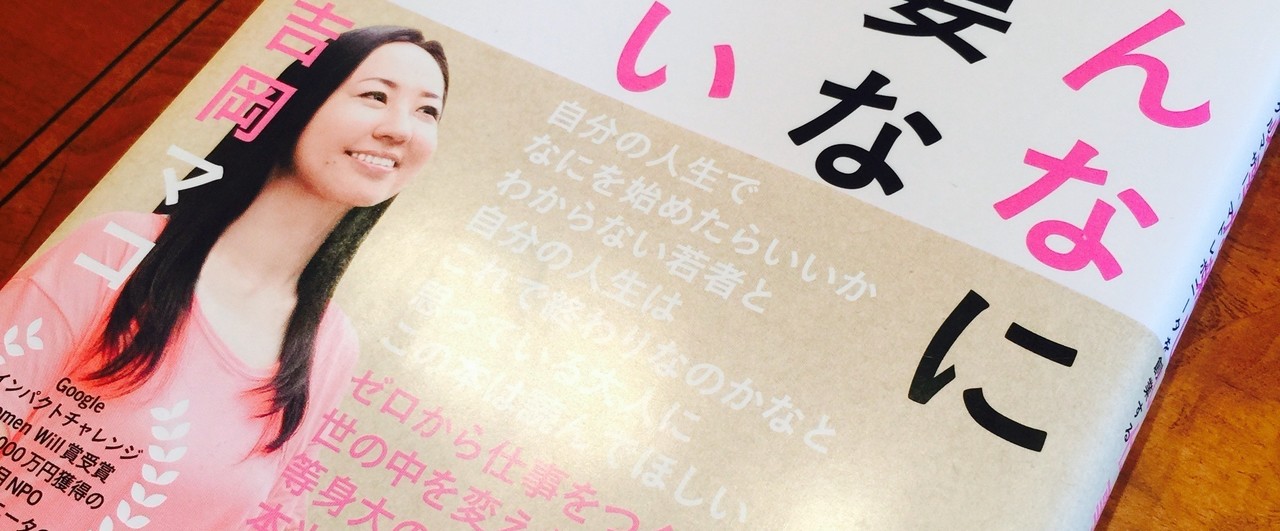 んなに
要な
い
吉岡マコ
自分の人生で
なにを始めたらいいか
わからない若者と
自分の人生は
これで終わりなのかなと
思っている大人に
この本は読んでほしい
ゼロから仕事をつく
世の中を変え
等身大の
Google
インパクトチャレンジ
omen Will 賞受賞
000万円獲得の
目NPO